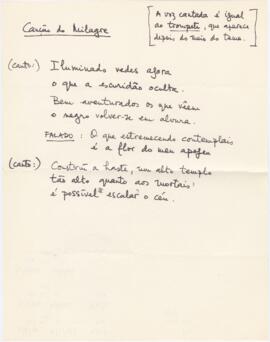 Canção do Milagre
[A voz cantada é igual
ao trompete, que aparece
depois do meio do tema.]
(canto:) Iluminado vedes agora
o que a escuridão oculta.
Bem aventurados os que vêem
o negro volver-se em alvura.
FALADO: O que estremecendo contemplais
é a flor do meu apogeu
(canto:) Construí a hoste, um alto templo
tão alto quanto aos mortais
é possível escalar o céu.